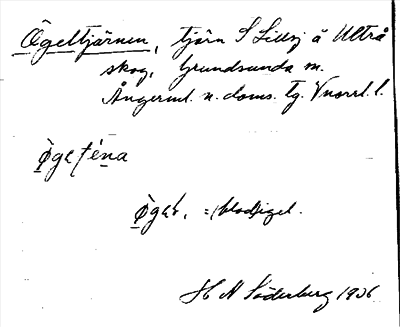 Ögeltjärnen, tjärn S Lillsj å Ultrå
skog, Grundsunda sn.
Ångerml. n. doms. tg. Vnorrl. l.
ø̀gaʃéna
ø̀gəl, =(blod)igel.
H N Söderberg 1936